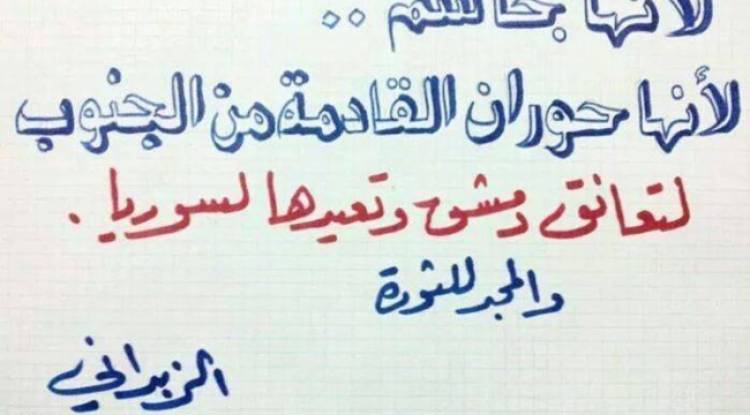 لأنها جاسم ..
لأنها حوران القادمة من الجنوب
لتعانق دمشق وتعيدها لسوريا .
والمجد للثورة
الزبداني